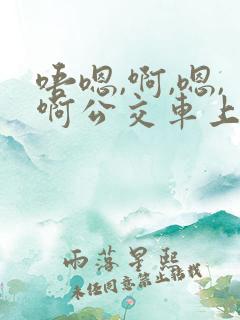 唔嗯,啊,嗯,
啊公交车上
雨落星熙
未经同意禁止转载